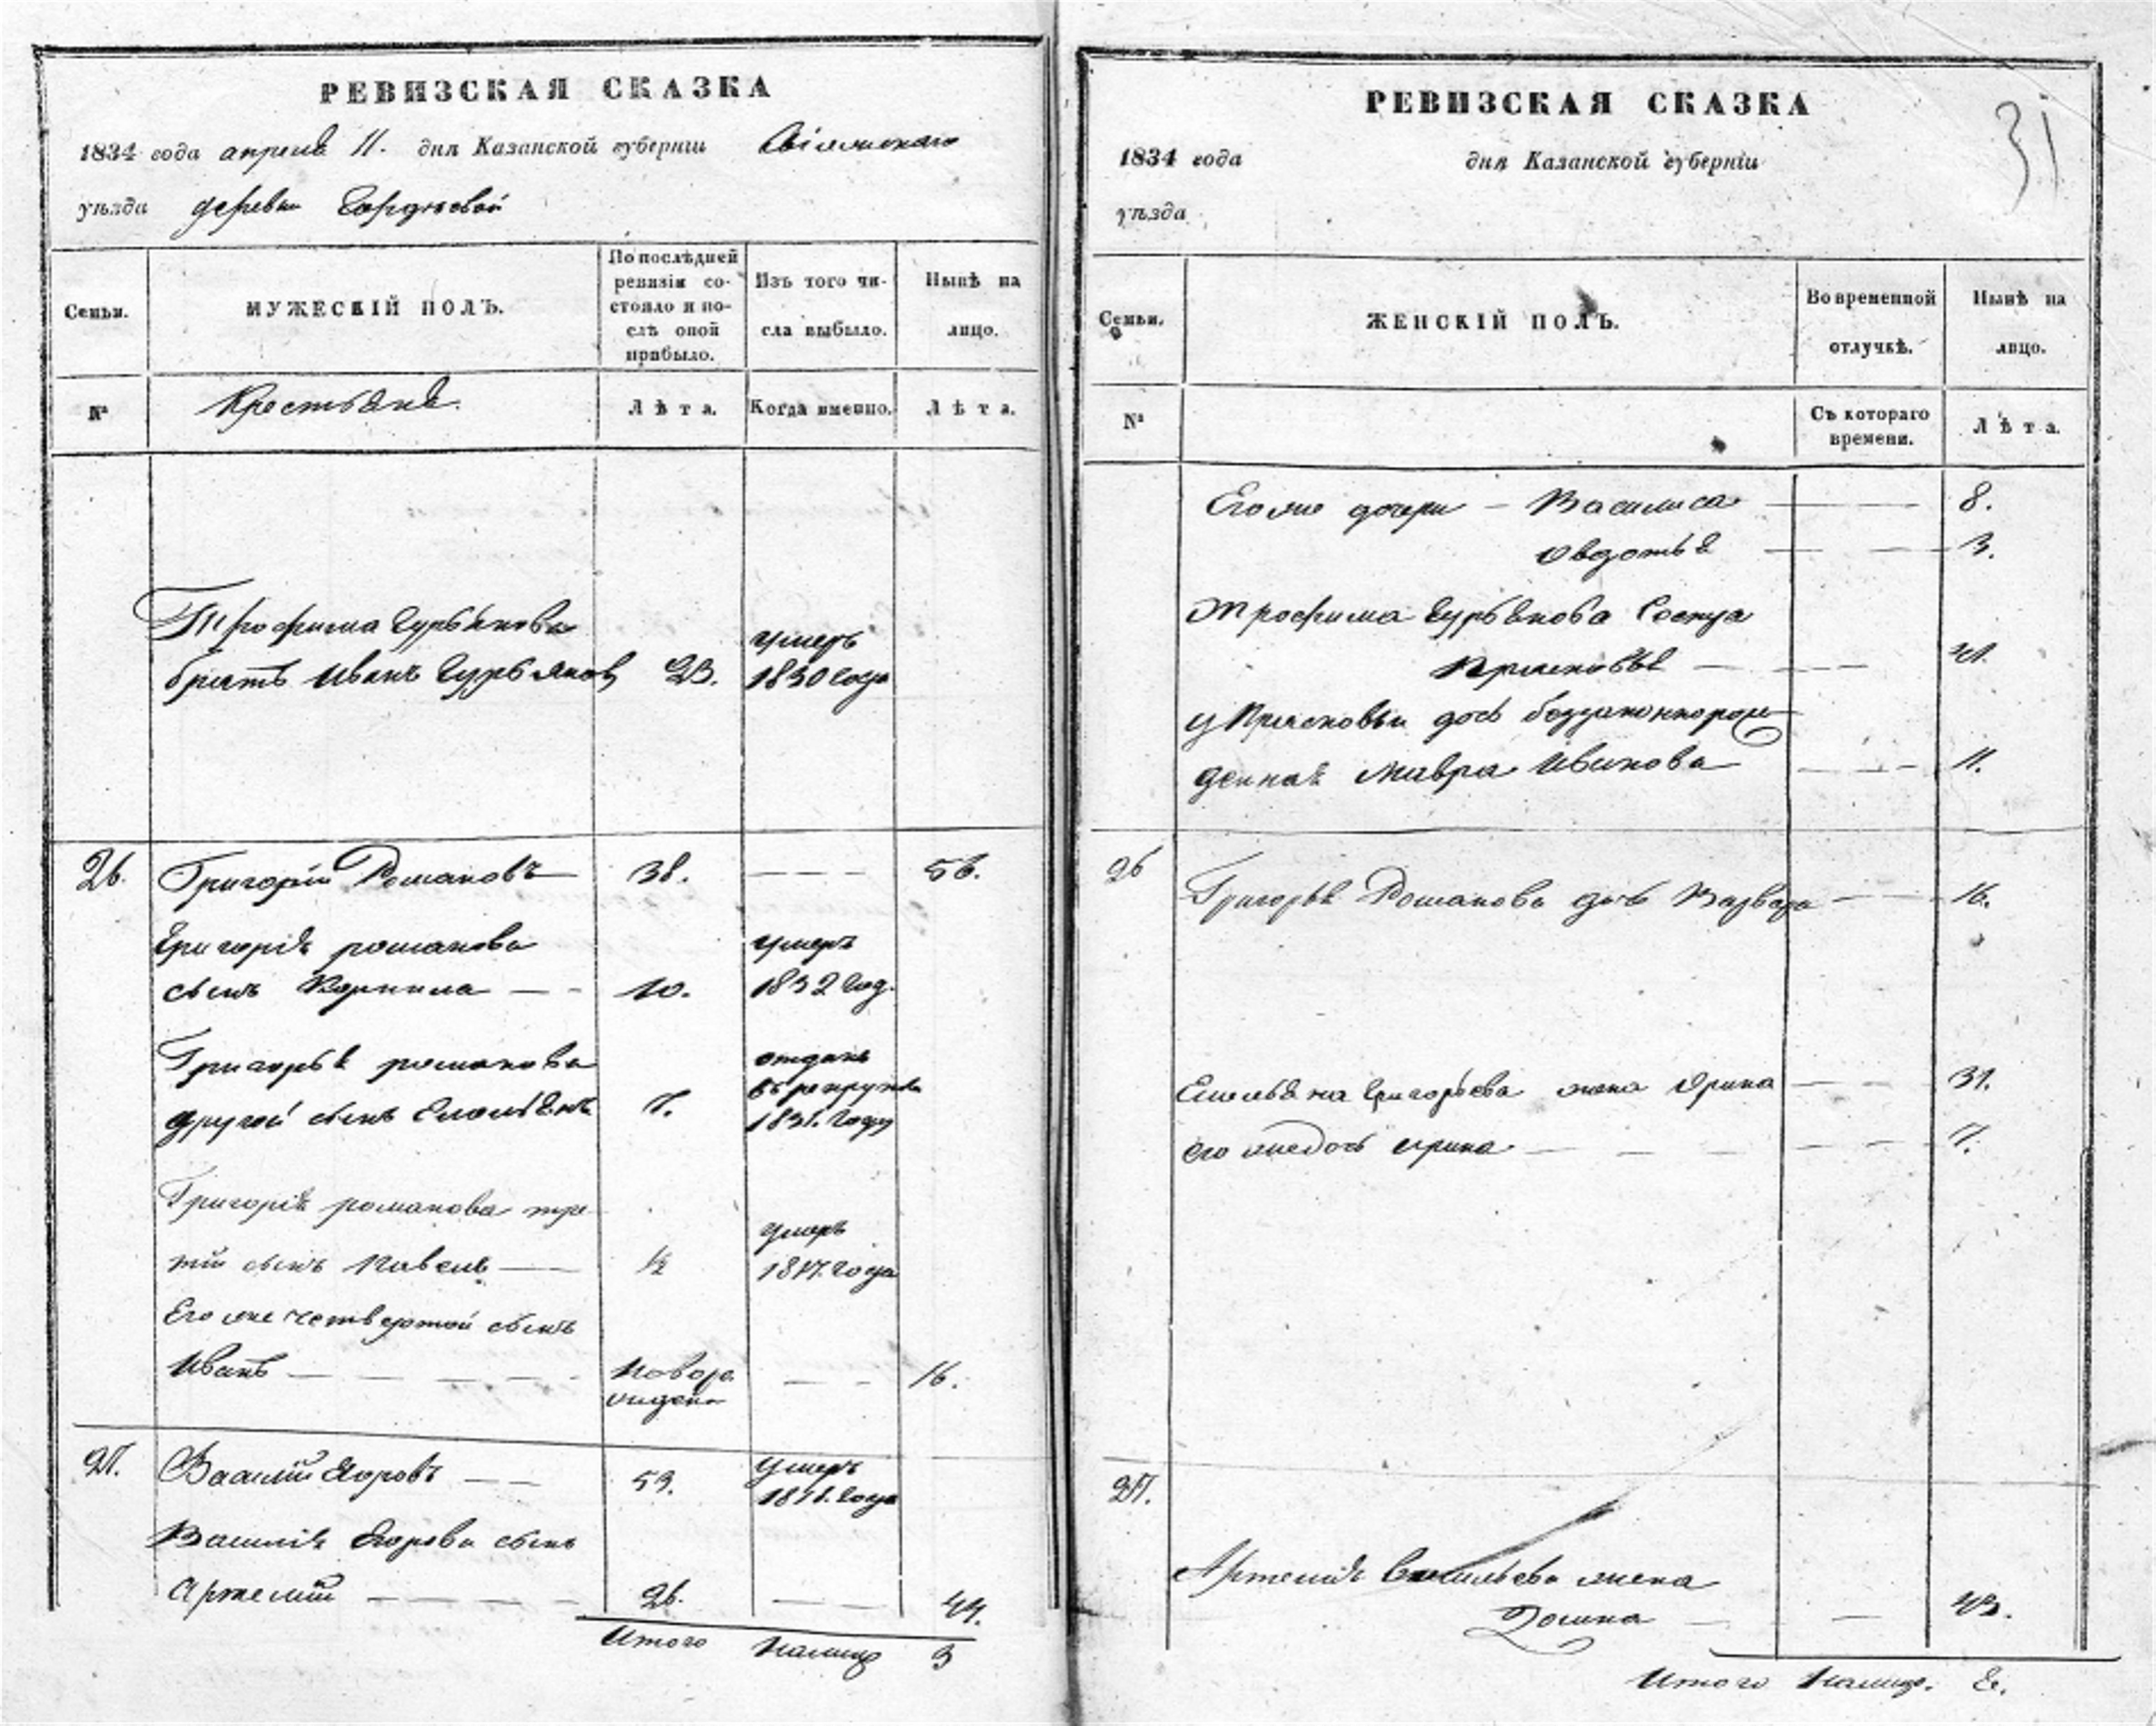 РЕВИЗСКАЯ СКАЗКА
1834 года апреля 11. дня Казанской губернiи
уѣзда деревни
Семьи.
МУЖЕСКІЙ ПОЛЪ.
По послѣдней ревизіи со-
стояло и по-
слѣ оной
прибыло.
Изъ того чи-
сла выбыло.
Нынѣ на
лицо.
№
Крестьяне.
Лѣта.
Когда именно.
Лѣта.
Трофима Гурьянова
братъ Иванъ Гурьяновъ 23. умеръ 1830 года
26. Григорій Романовъ 38. — — — 56.
Григорія романова
сынъ — — 10. умеръ 1832 год.
Григорья романова
другой сынъ Емельянъ 7. отданъ въ рекруты 1831. году
Григорія романова тре-
тій сынъ Павелъ — ½ умеръ 18 года
Его же четвертой сынъ
Иванъ — — — — — новоро-
жденъ — — 16.
27. Василій Егоровъ — — 53. умеръ 18 года
Василія Егорова сынъ
Артемій — — — — 26. — — 44.
Итого налицо 3
РЕВИЗСКАЯ СКАЗКА
31
1834 года дня Казанской губернiи
уѣзда
Семьи.
ЖЕНСКІЙ ПОЛЪ.
Во временной
отлучкѣ.
Нынѣ на
лицо.
№
Съ котораго
времени.
Лѣта.
Его же дочери — Василиса — — 8.
Овдотья — — — 3.
Трофима Гурьянова Сестра
Прасковья — — — 41.
у Прасковьи дочь беззаконнорож-
денная Мавра Иванова — — — 11.
26 Григорья Романова дочь Варвара — — 16.
Емельяна Григорьева жена Орина — — 31.
его же дочь Ирина — — — — — 7.
27.
Артемія Васильева жена
Домна — — 43.
Итого налицо. 8.